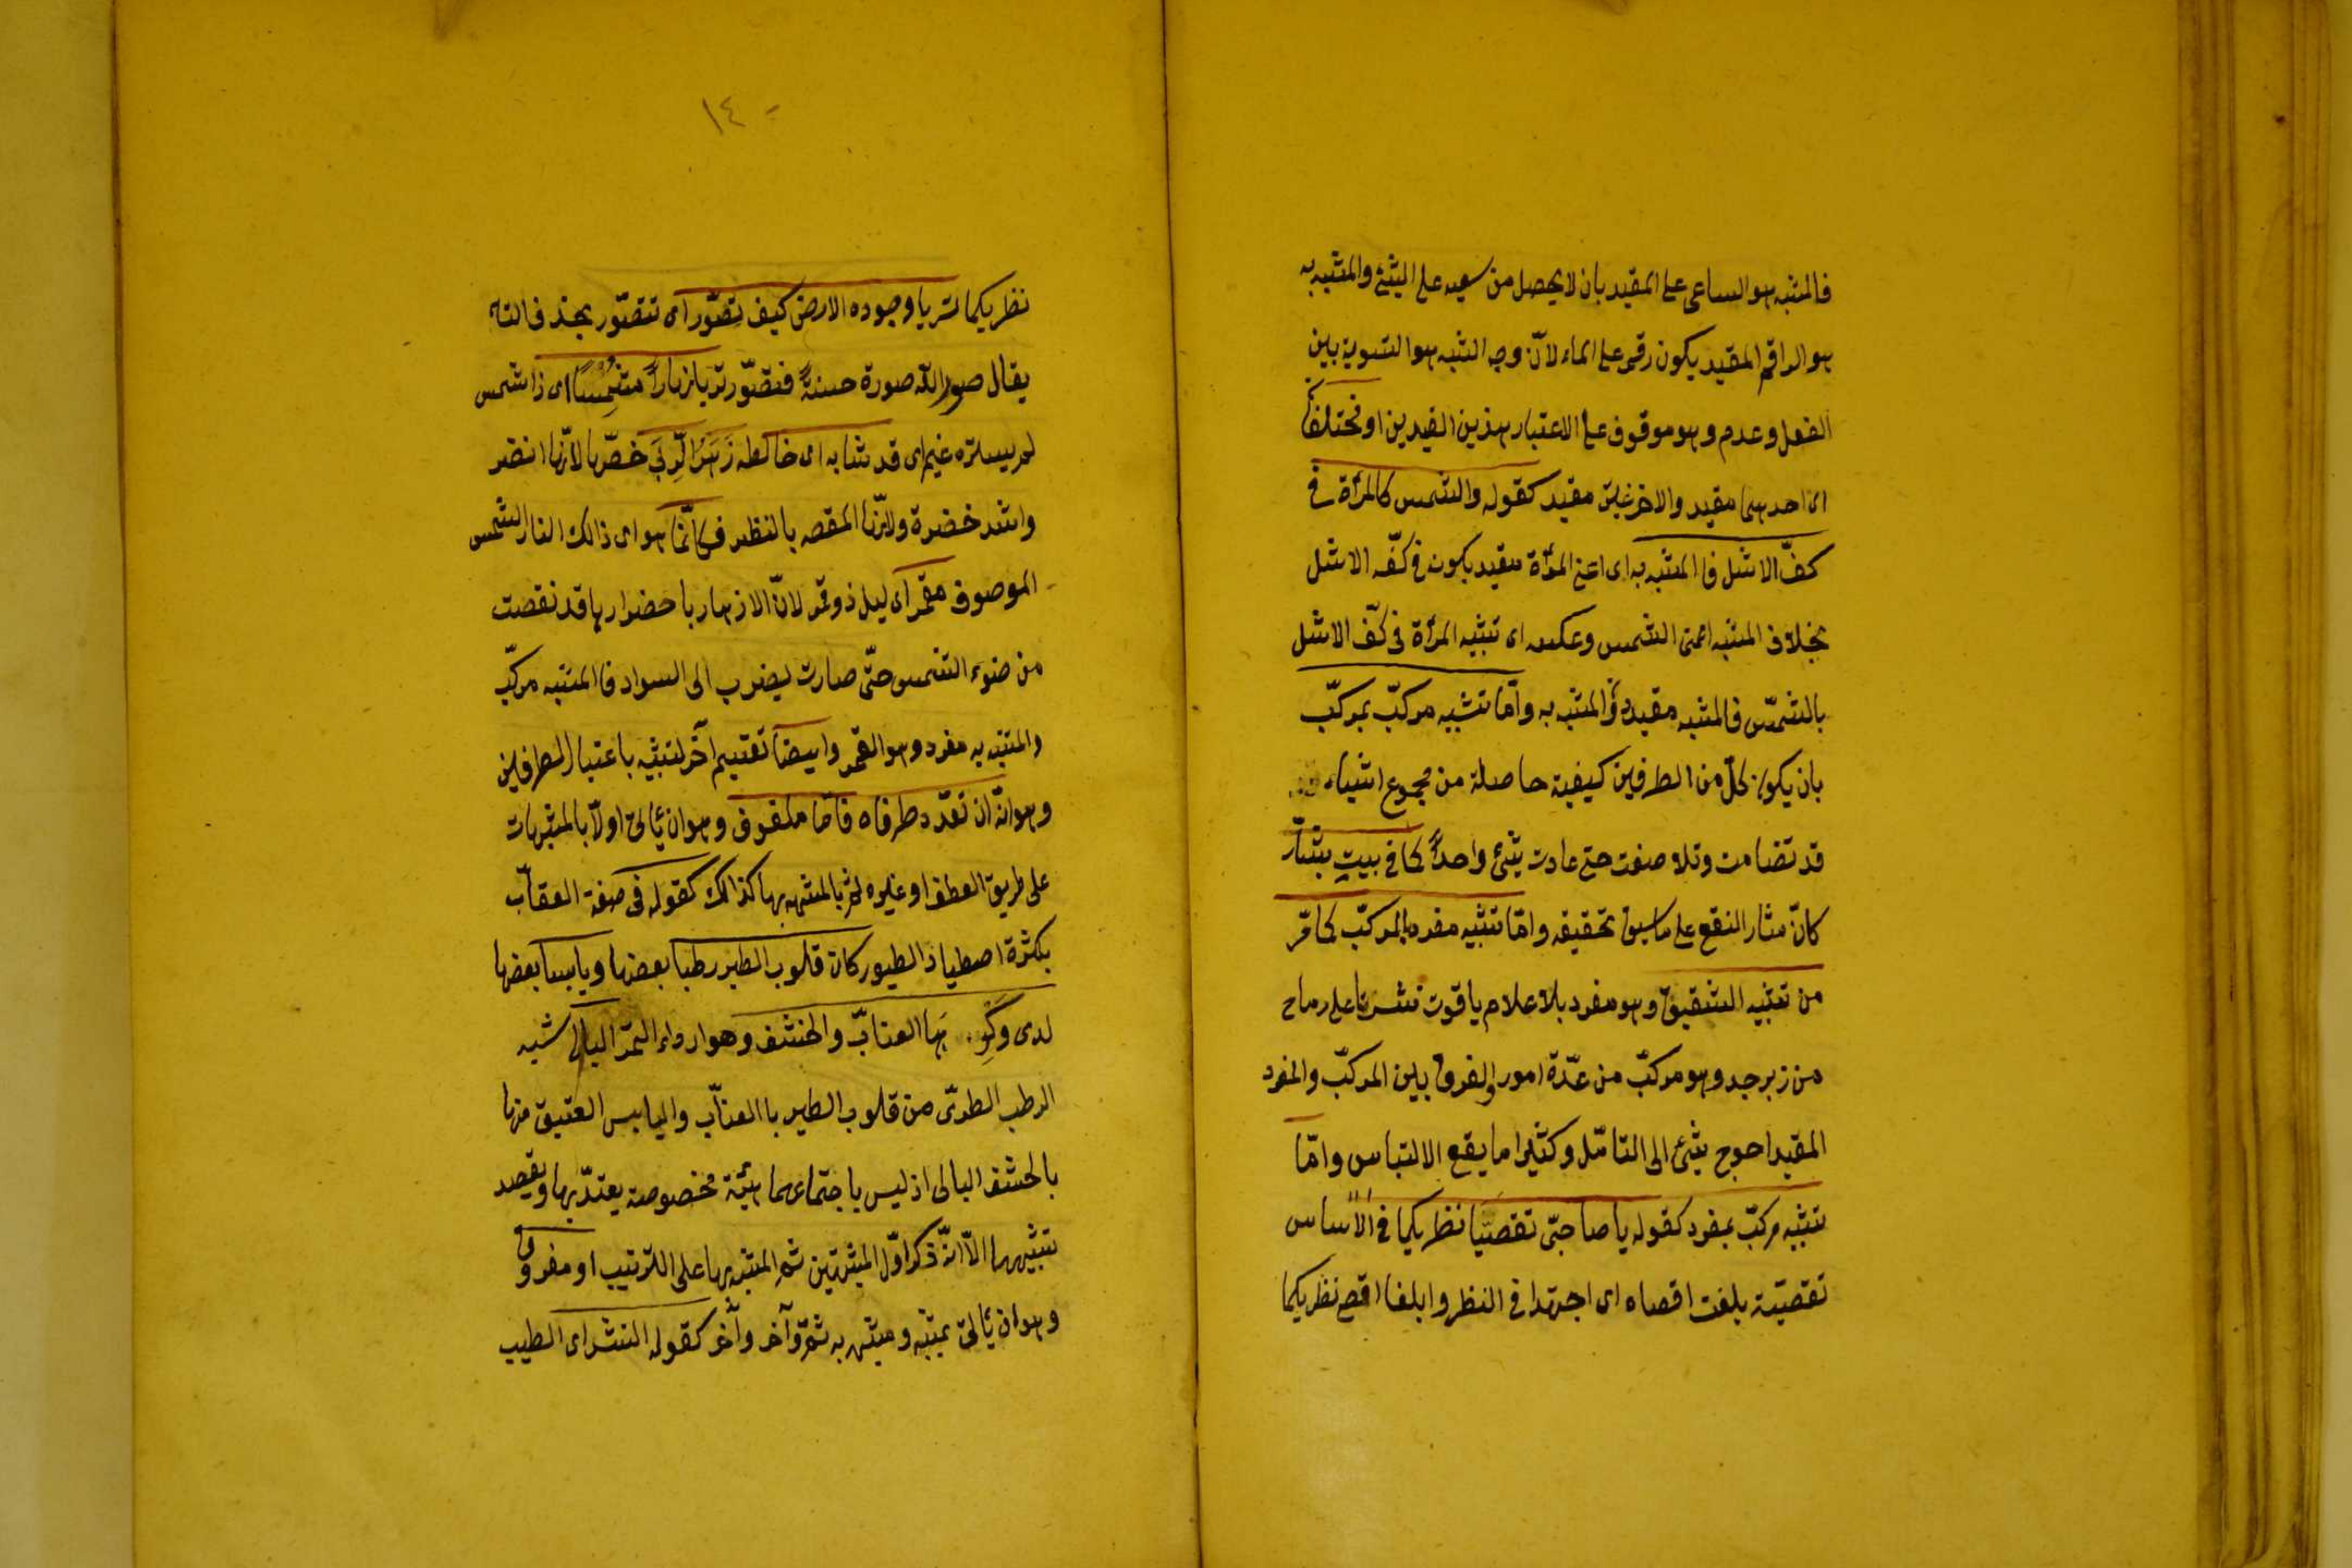 فالمشبه هو الساعى على المقيد بان لا يحصل من سعيه على الشئ والمشبه به
هو الراقم المقيد بكون رقمه على الماء لانّ وجه الشبه هو التسوية بين
الفعل وعدم وهو موقوف على الاعتبار هذين القيدين او مختلفان
اى احدهما مقيد والاخر غير مقيد كقوله والشمس كالمرأة فى
كفّ الاشل فالمشبه به اى اعنى المرأة مقيد بكون فى كفّه الاشل
بخلاف المشبه اعنى الشمس وعكسه اى تشبيه المرأة فى كفّ الاشل
بالشمس فالمشبه مقيد دون المشبه به وامّا تشبيه مركّب بمركّب
بان يكون كلّ من الطرفين كيفية حاصلة من مجموع اشياء
قد تضامت وتلاصقت حتى عادت شئ واحداً كما فى بيت بشّار
كانّ مثار النقع على ما سبق تحقيقه وامّا تشبيه مفرد بالمركّب كما مرّ
من تشبيه الشقيق وهو مفرد بلا علام ياقوت نشرنا على رماح
من زبرجد وهو مركّب من عدّة امور والفرق بين المركّب والمفرد
المقيد احوج شئ الى التامّل وكثيرا ما يقع الالتباس وامّا
تشبيه مركّب بمفرد كقوله يا صاحبىّ تقصّيا نظريكما فى الاساس
تقصّيته بلغت اقصاه اى اجتهدا فى النظر وابلغا اقصى نظريكما
١٤
نظريكما تريا وجوده الارض كيف تصوّر اى تتصوّر بحذف التاء
يقال صوره اللّه صورة حسنةً فتصوّر تريا نهاراً مشمساً اى ذا شمس
لم يستره غيم اى قد شابه اى خالطه زَهَرُ الرُّبَى خصّها لانّها انضر
واشد خضرة ولانّها المقصد بالنظر فكانّما هو اى ذالك النهار الشمس
الموصوف مقمر اى ليل ذو قمر لانّ الازهار باخضرارها قد نقصت
من ضوء الشمس حتّى صارت يضرب الى السواد فالمشبه مركّب
والمشبه به مفرد وهو القمر وايضا تقسيم آخر لتشبيه باعتبار الطرفين
وهو انّه ان تعدّد طرفاه فامّا ملفوف وهو ان يأتى اولاّ بالمشبهات
على طريق العطف او غيره ثم بالمشبه بها كذالك كقوله فى صفة العقاب
بكثرة اصطياد الطيور كان قلوب الطير رطبا بعضها ويابسا بعضها
لدى وكرها العنابّ والحشف وهو ارداء التمر البالى شبه
الرطب الطرىّ من قلوب الطير باالعنّاب واليابس العتيق منها
بالحشف البالى اذ ليس ياجتماعهما هيئة مخصوصة يعتدّ بها ويقصد
تشبيهها الاّ انّه ذكر اوّل المشبهتين ثم المشبه بها على الترتيب او مفروق
وهو ان يأتى بمشبه ومشبه به ثمّ وآخر وآخر كقوله النشر اى الطيب